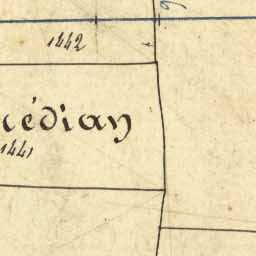 1442
cédian
1441